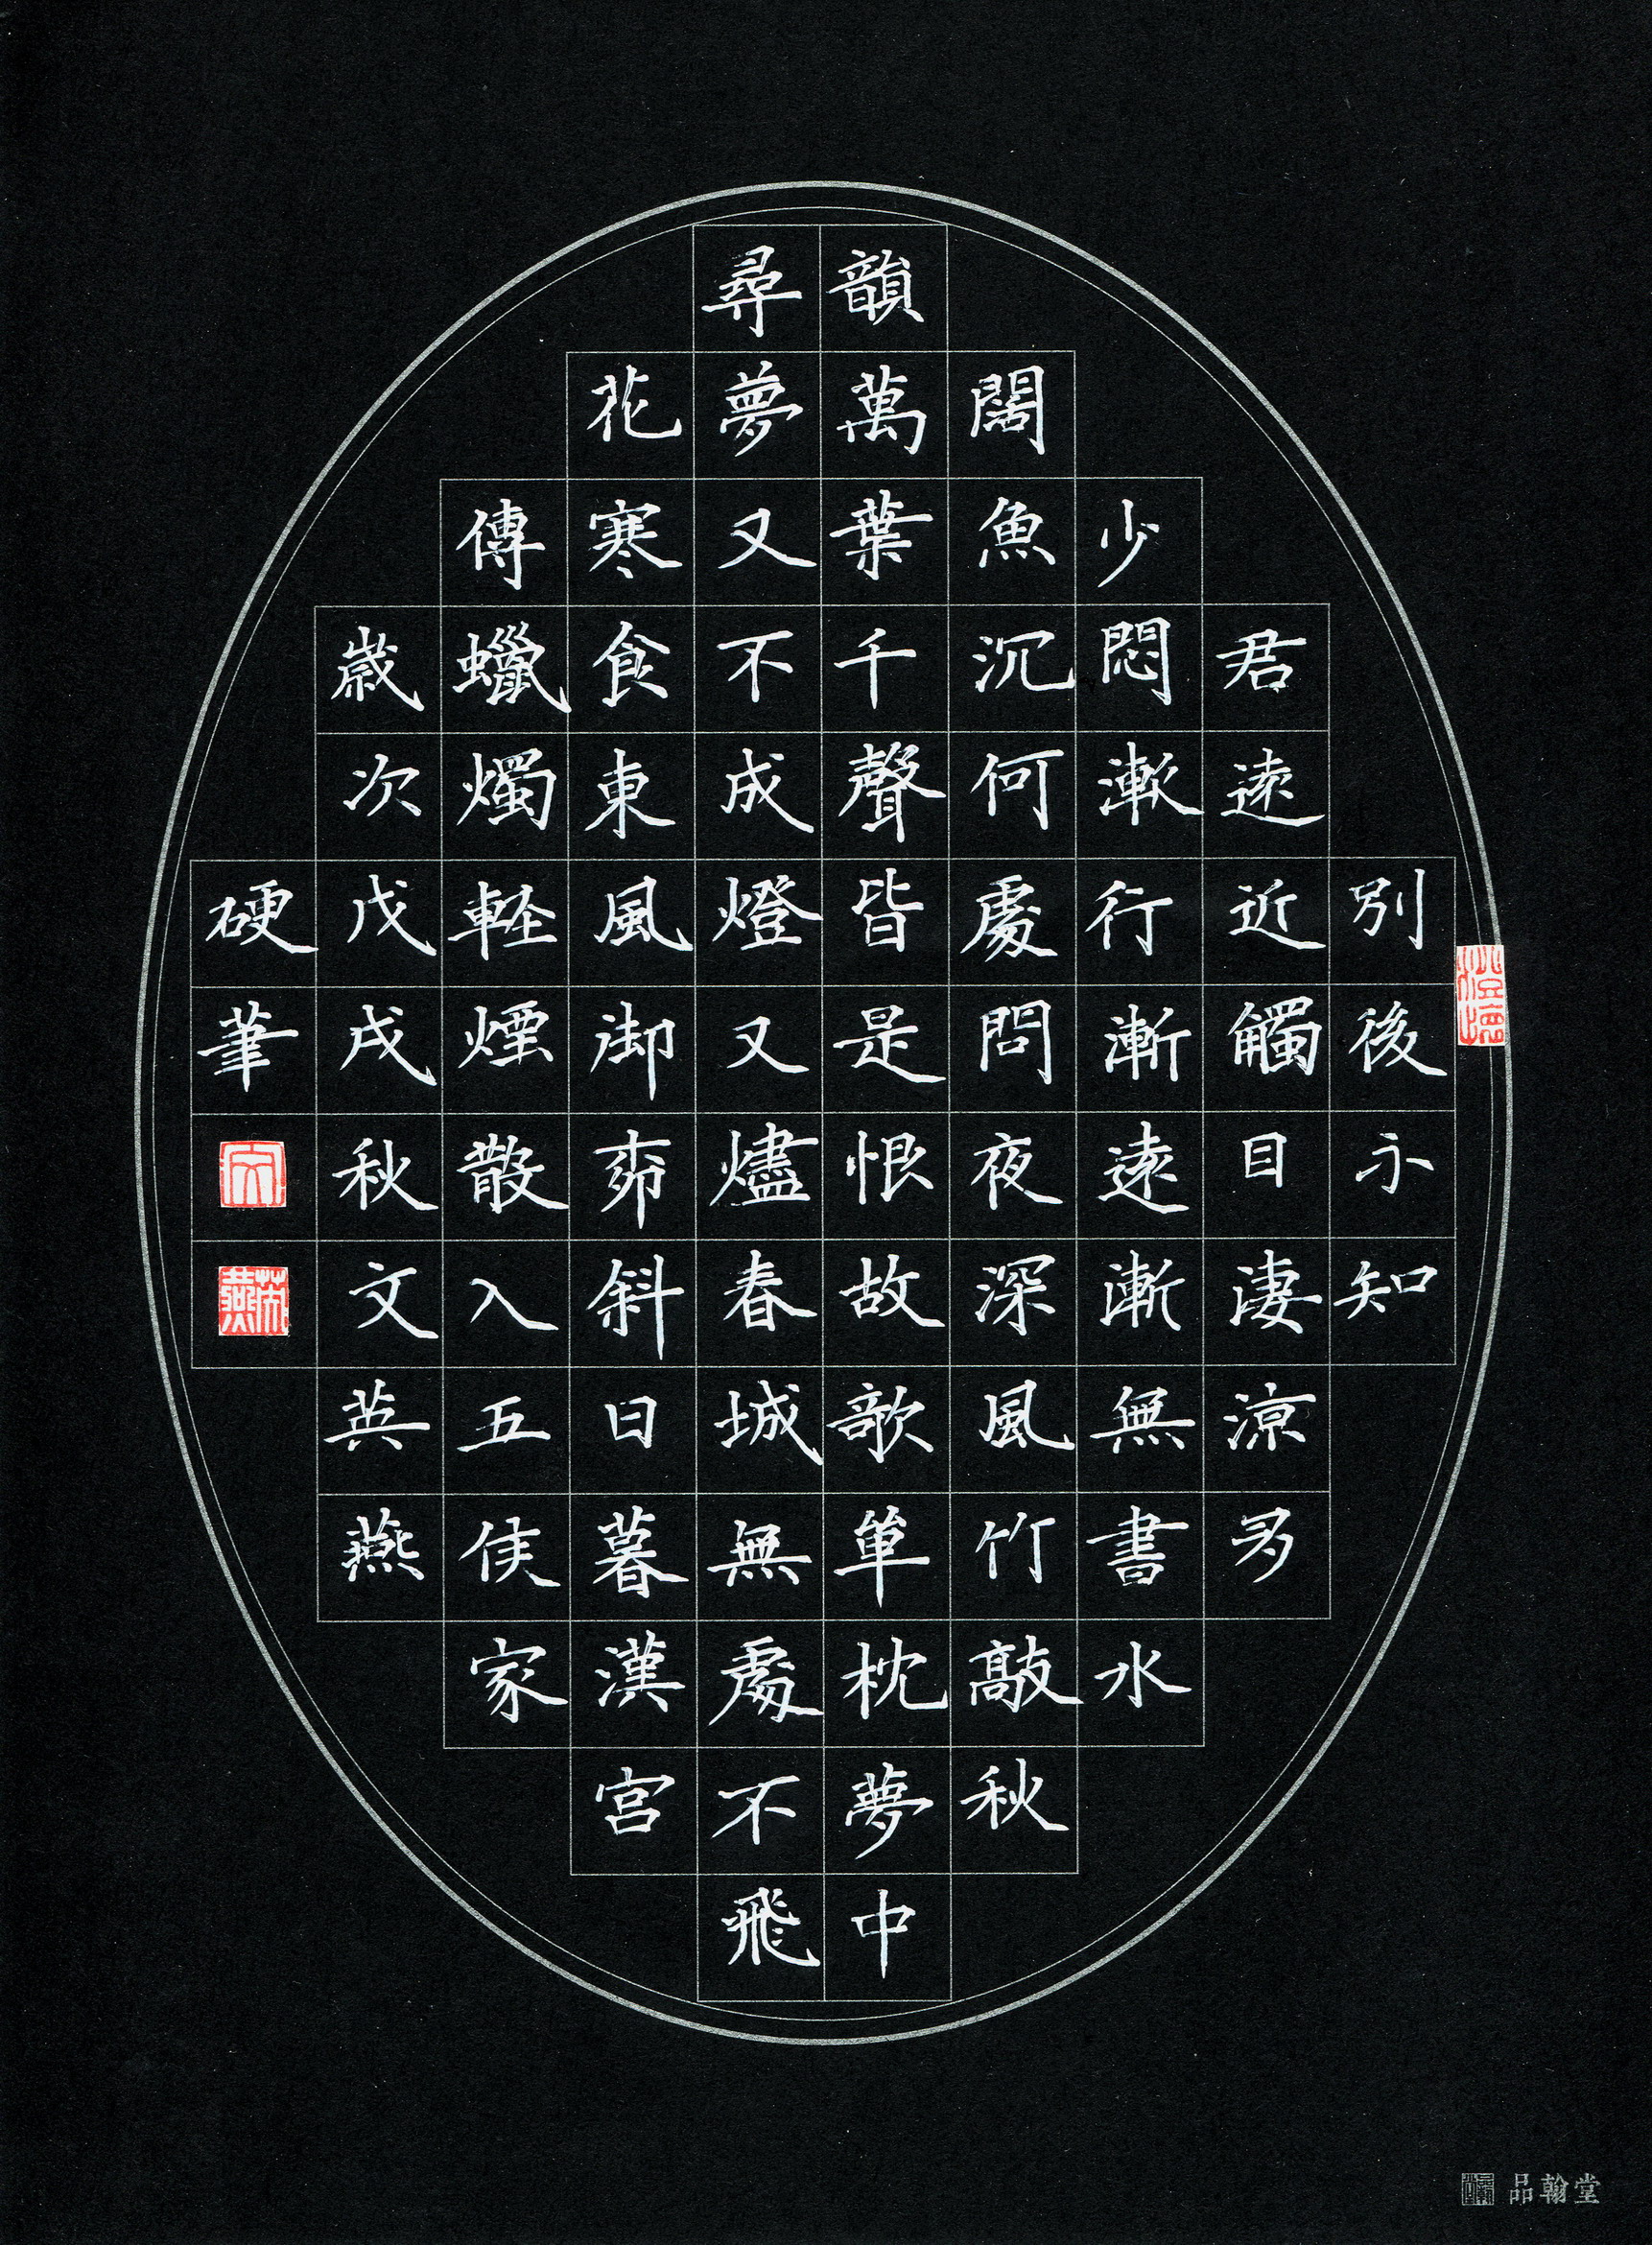 別後不知
君遠近觸目淒涼多
少悶漸行漸遠漸無書水
闊魚沉何處問夜深風竹敲秋
韻萬葉千聲皆是恨故欹單枕夢中
尋夢又不成燈又燼春城無處不飛
花寒食東風御柳斜日暮漢宮
傳蠟燭軽煙散入五侯家
歲次戊戌秋文英燕
硬筆
品翰堂